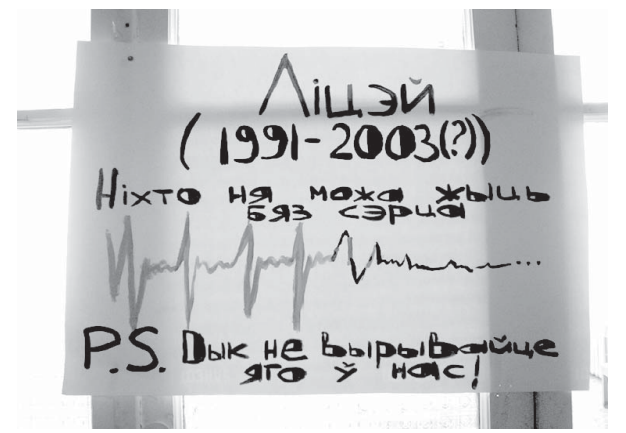 Ліцэй
(1991-2003(?))
Ніхто ня можа жыць
бяз сэрца
...
P.S. Дык не вырывайце
яго ў нас!